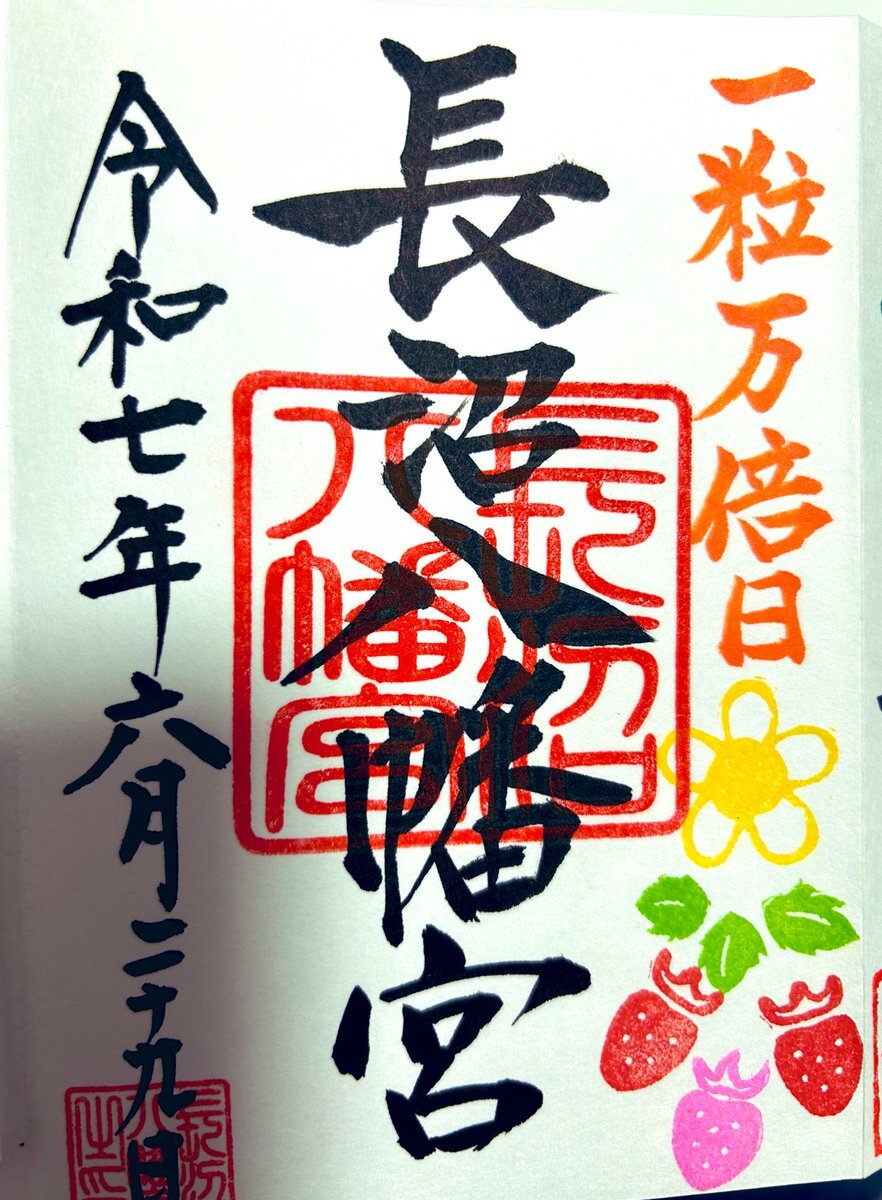 一粒万倍日
長沼八幡宮
長沼
八幡宮
令和七年六月二十九日